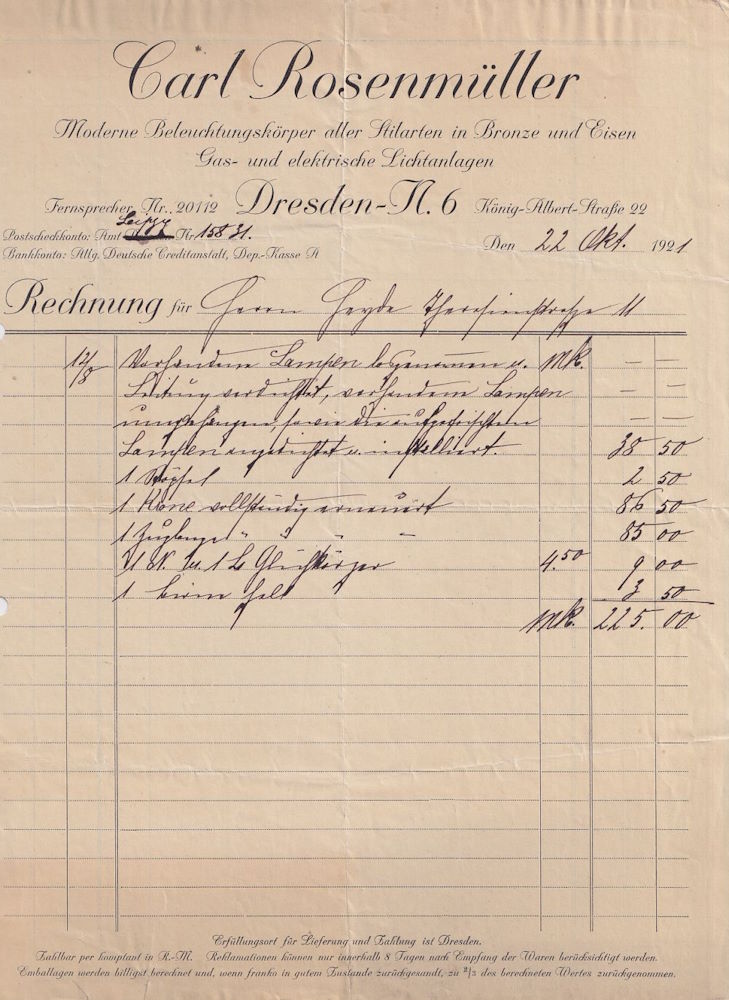 Carl Rosenmüller
Moderne Beleuchtungskörper aller Stilarten in Bronze und Eisen
Gas- und elektrische Lichtanlagen
Fernsprecher Nr. 20112 Dresden-N. 6 König-Albert-Straße 22
Leipzg
Postscheckkonto: Amt Nr. 15831.
Bankkonto: Allg. Deutsche Creditanstalt, Dep.-Kasse A
Den 22 Okt. 1921
Rechnung für Herrn Heyde Theresienstrasse 11
12/8 Vorhandene Lampen abgenommen u. Mk. — —
Leitung verdichtet, vorhandene Lampen — —
umgehangen, sowie die aufgefrischten — —
Lampen angedichtet u. installiert. 38 50
1 Stöpsel 2 50
1 Krone vollständig erneuert 86 50
1 Zuglampe " " " 85 00
1 Glühkörper 4.50 9 00
1 birne hell 3 50
Mk. 225. 00
Erfüllungsort für Lieferung und Zahlung ist Dresden.
Zahlbar per komptant in R.-M. Reklamationen können nur innerhalb 8 Tagen nach Empfang der Waren berücksichtigt werden.
Emballagen werden billigst berechnet und, wenn franko in gutem Zustande zurückgesandt, zu 2/3 des berechneten Wertes zurückgenommen.